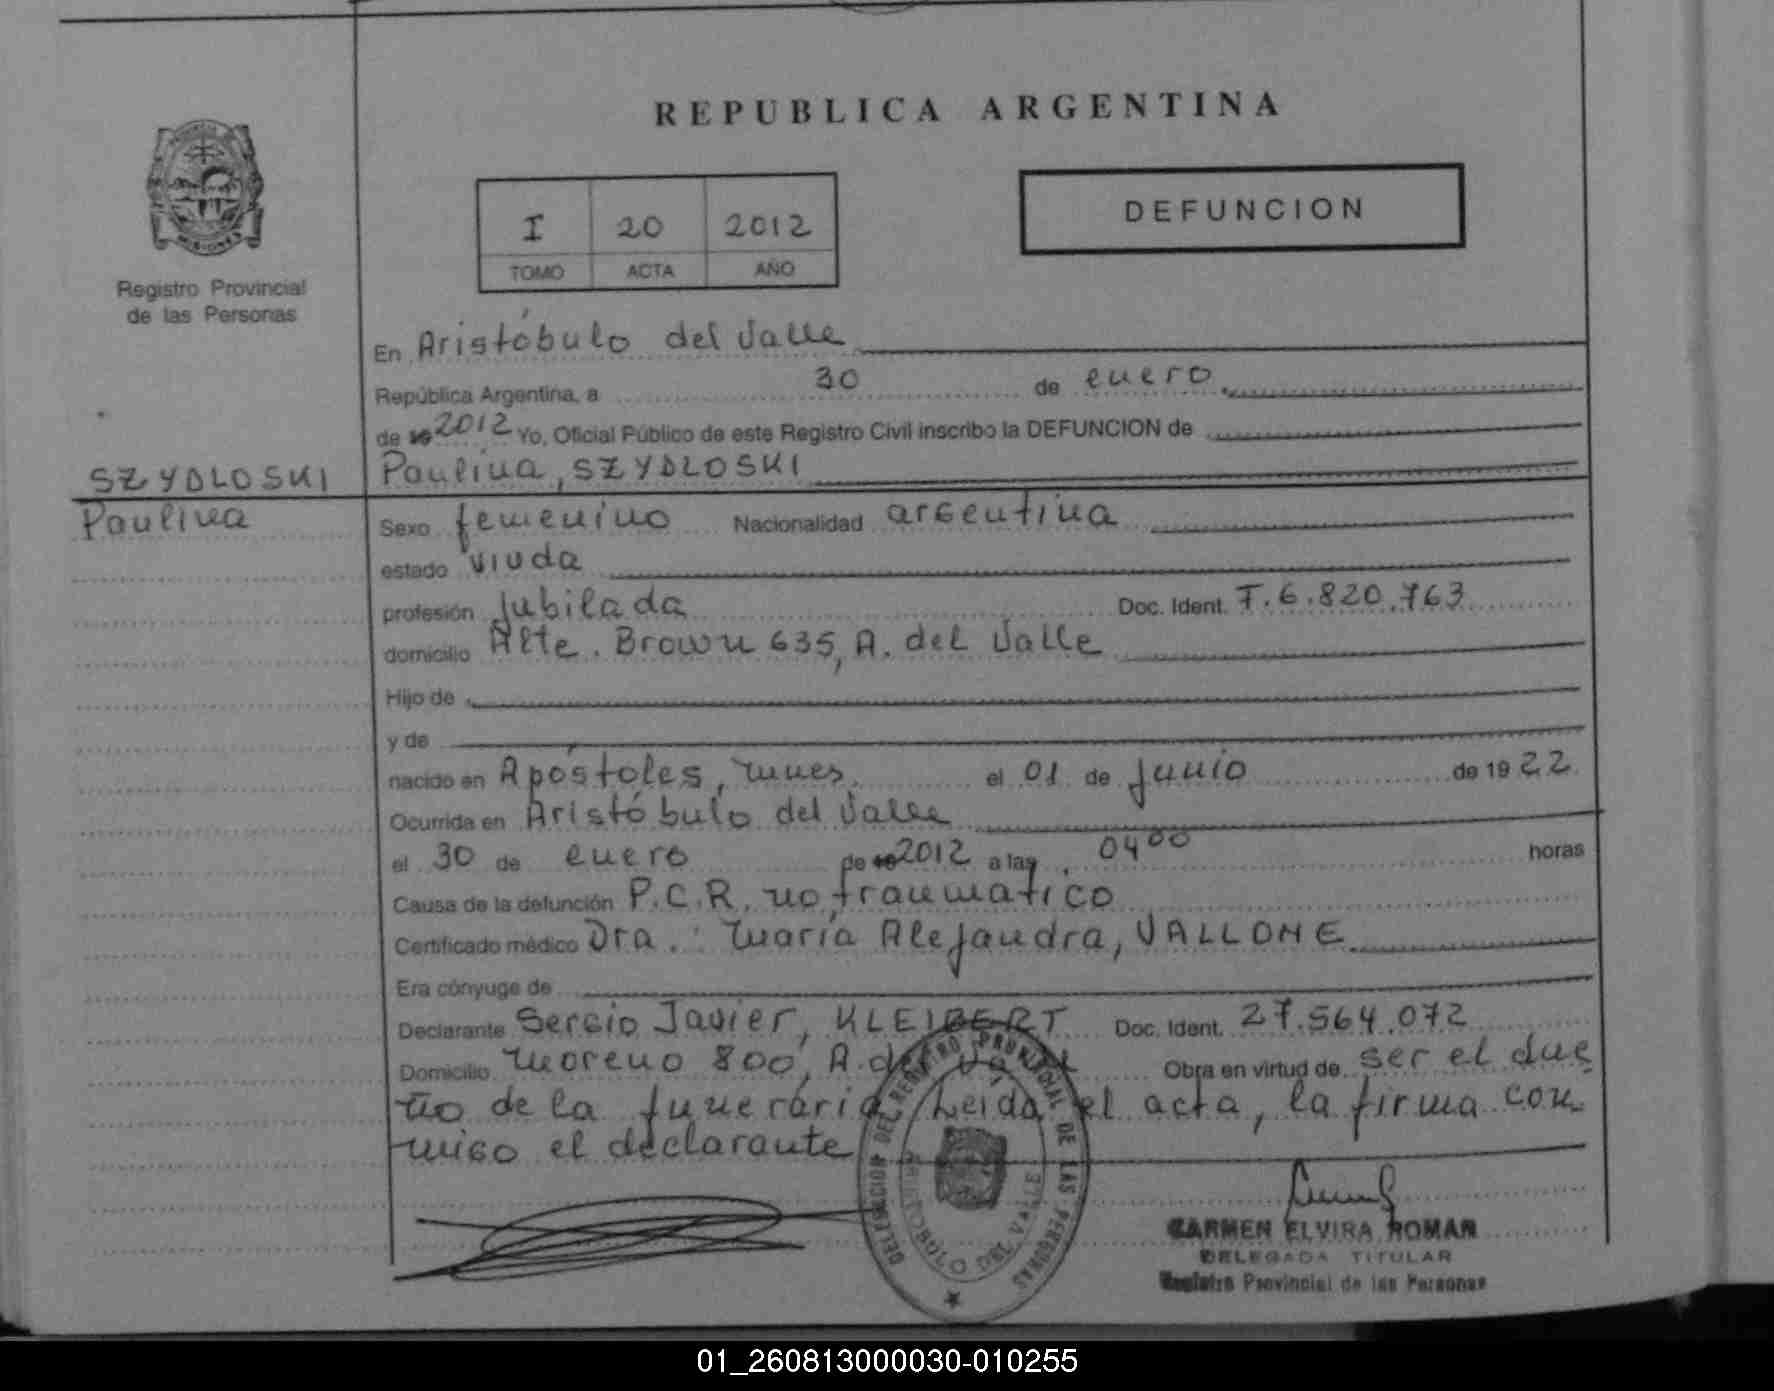 REPUBLICA ARGENTINA
I 20 2012
TOMO ACTA AÑO
DEFUNCION
MISIONES
Registro Provincial
de las Personas
En Aristóbulo del Valle
República Argentina, a 30 de enero
de 19 2012 Yo, Oficial Público de este Registro Civil inscribo la DEFUNCION de
Paulina, SZYDLOSKI
SZYDLOSKI
Paulina
Sexo femenino Nacionalidad argentina
estado viuda
profesión jubilada Doc. Ident. F.6.820.763
domicilio Alte. Brown 635, A. del Valle
Hijo de
y de
nacido en Apóstoles, Mnes. el 01 de junio de 1922
Ocurrida en Aristóbulo del Valle
el 30 de enero de 19 2012 a las 04 00 horas
Causa de la defunción P.C.R. no traumatico
Certificado médico Dra.: María Alejandra, VALLONE
Era cónyuge de
Declarante Sergio Javier, KLEIBERT Doc. Ident. 27.564.072
Domicilio Moreno 800, A. del Valle Obra en virtud de ser el due
ño de la funeraria. Leida el acta, la firma con
migo el declarante
DELEGACION DEL REGISTRO PROVINCIAL DE LAS PERSONAS
ARISTOBULO DEL VALLE
CARMEN ELVIRA ROMAN
DELEGADA TITULAR
Registro Provincial de las Personas
01_260813000030-010255